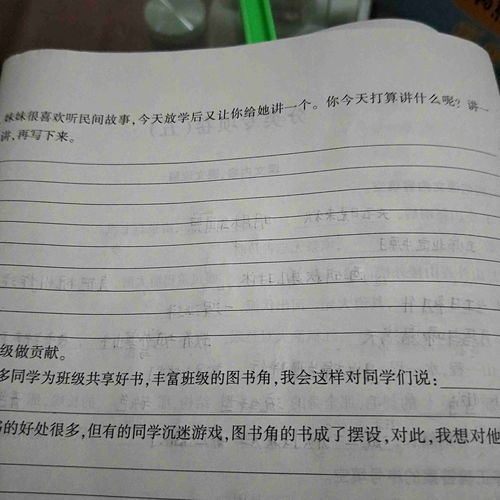 妹妹很喜欢听民间故事,今天放学后又让你给她讲一个。你今天打算讲什么呢?讲一
讲,再写下来。
级做贡献。
多同学为班级共享好书,丰富班级的图书角,我会这样对同学们说:
的好处很多,但有的同学沉迷游戏,图书角的书成了摆设,对此,我想对他